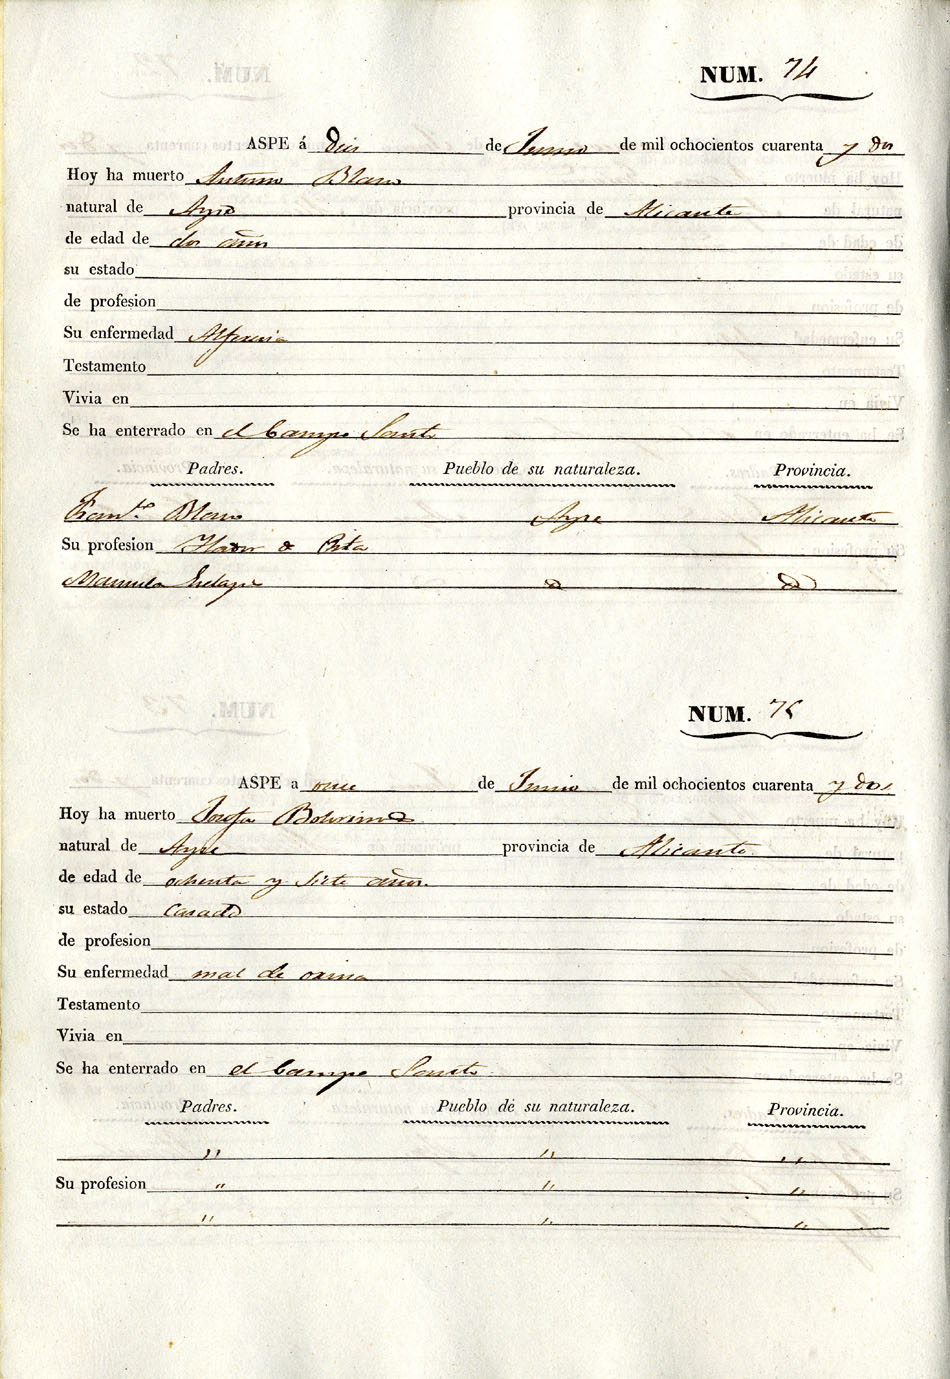 NUM. 74
ASPE á diez de Junio de mil ochocientos cuarenta y dos
Hoy ha muerto Antonio Blasco
natural de Aspe provincia de Alicante
de edad de dos años
su estado
de profesion
Su enfermedad Alferecia
Testamento
Vivia en
Se ha enterrado en el Campo Santo
Padres. Pueblo de su naturaleza. Provincia.
Blasco Aspe Alicante
Su profesion
Manuela
NUM. 75
ASPE a once de Junio de mil ochocientos cuarenta y dos
Hoy ha muerto Josefa
natural de Aspe provincia de Alicante
de edad de ochenta y siete años.
su estado casada
de profesion
Su enfermedad mal de orina
Testamento
Vivia en
Se ha enterrado en el Campo Santo
Padres. Pueblo de su naturaleza. Provincia.
" " "
Su profesion " " "
" " "